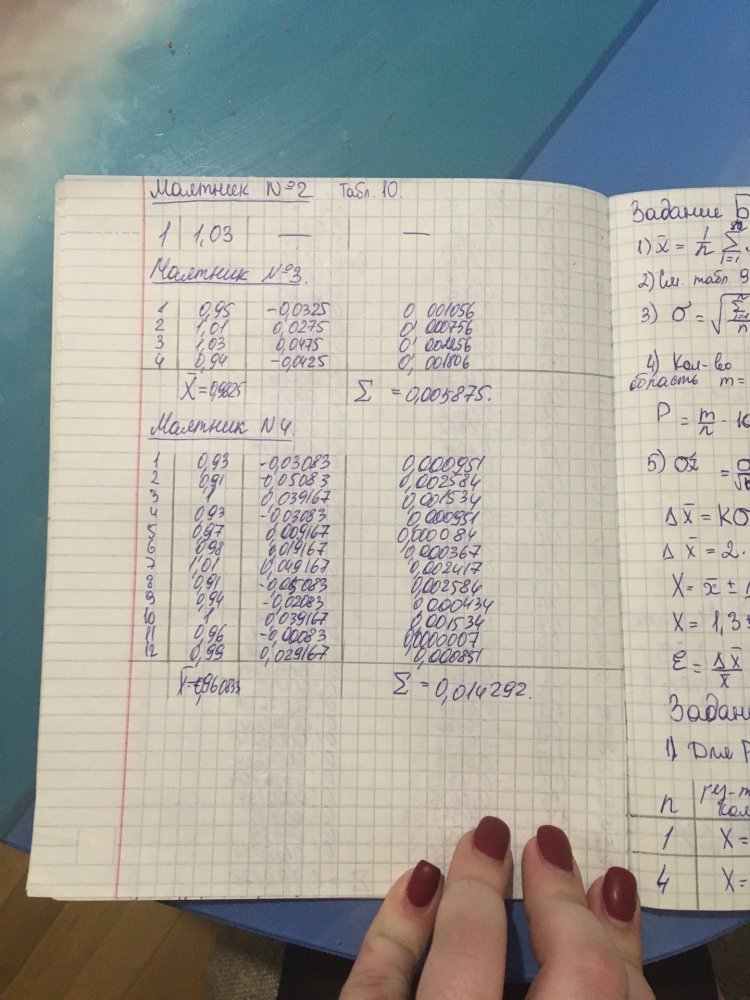 Маятник №2 Табл. 10.
1 1,03 — —
Маятник №3.
1 0,95 -0,0325 0 001056
2 1,01 0,0275 0, 000756
3 1,03 0,0475 0,
4 0,94 -0,0425 0, 001806
X̄ = 0,9825 Σ = 0,005875.
Маятник N4.
1 0,93 -0,03083 0,000951
2 0,91 -0,05083 0,002584
3 1 0,039167 0,001534
4 0,93 -0,03083 0,000951
5 0,97 0,009167 0,000084
6 0,98 0,019167 0,000367
7 1,01 0,049167 0,002417
8 0,91 -0,05083 0,002584
9 0,94 -0,02083 0,000434
10 1 0,039167 0,001534
11 0,96 -0,00083 0,0000007
12 0,99 0,029167 0,000851
X̄=0,960833 Σ = 0,014292.
Задание Б
1) x̄ = 1/n Σ i=1
2) См. табл 9
3) σ = √ Σ i=1 n
4) Кол-во
область m =
P = m/n · 10
5) σx̄ = σ
Δ x̄ = Kσ
Δ x̄ = 2.
X = x̄ ±
X = 1,3
ε = Δx̄/x̄
Задани
1) Для P
n
1 X =
4 X =